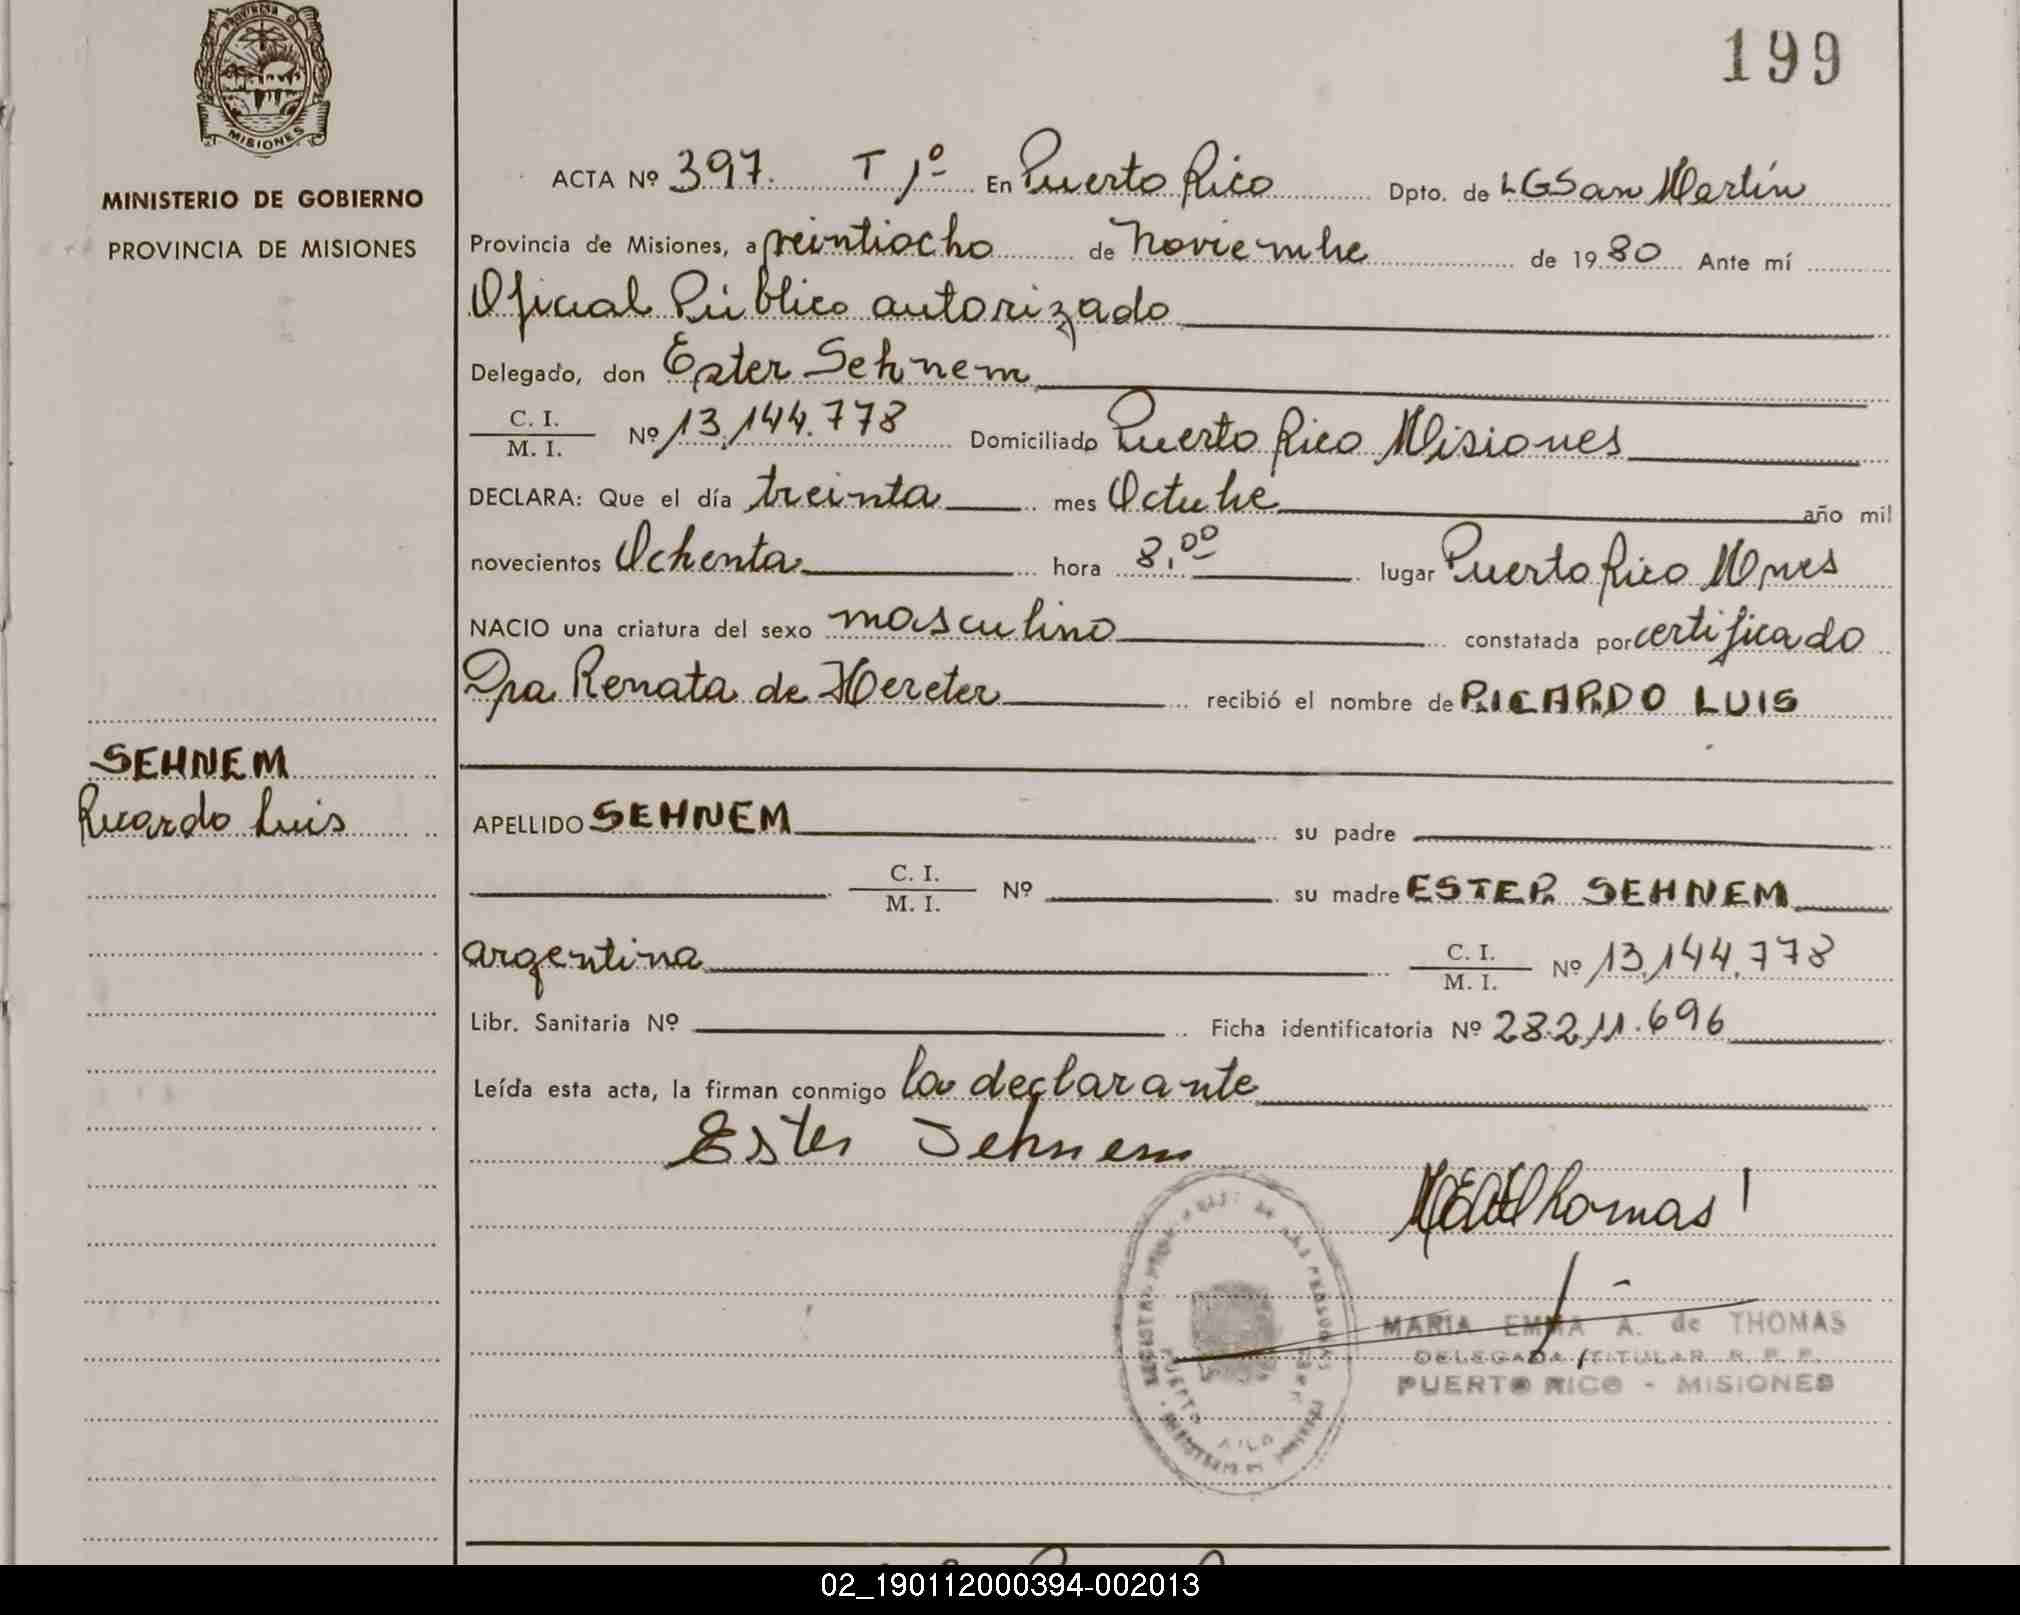 199
MISIONES
MINISTERIO DE GOBIERNO
PROVINCIA DE MISIONES
SEHNEM
Ricardo Luis
ACTA Nº 397. T 1º En Puerto Rico Dpto. de LGSan Martín
Provincia de Misiones, a veintiocho de Noviembre de 1980 Ante mí
Oficial Público autorizado
Delegado, don Ester Sehnem
C. I.
M. I. Nº 13.144.778 Domiciliado Puerto Rico Misiones
DECLARA: Que el día treinta mes Octubre año mil
novecientos Ochenta hora 8,00 lugar Puerto Rico Mnes
NACIO una criatura del sexo masculino constatada por certificado
Dra Renata de Hereter recibió el nombre de RICARDO LUIS
APELLIDO SEHNEM su padre
C. I.
M. I. Nº su madre ESTER SEHNEM
argentina C. I.
M. I. Nº 13.144.778
Libr. Sanitaria Nº Ficha identificatoria Nº 28.211.696
Leída esta acta, la firman conmigo la declarante
Ester Sehnem
MARIA EMMA A. de THOMAS
DELEGADA TITULAR R. P. P.
PUERTO RICO - MISIONES
02_190112000394-002013